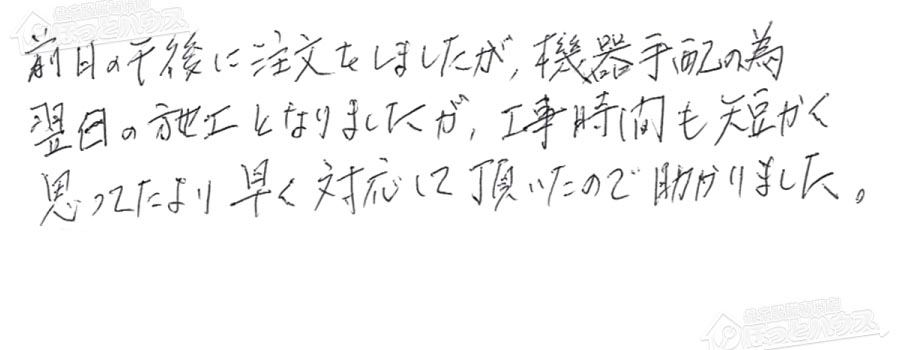 給湯設備専門店
ほっとハウス
前日の午後に注文をしましたが、機器手配の為
翌日の施工となりましたが、工事時間も短かく
思ってたより早く対応して頂いたので助かりました。
ほっとハウス